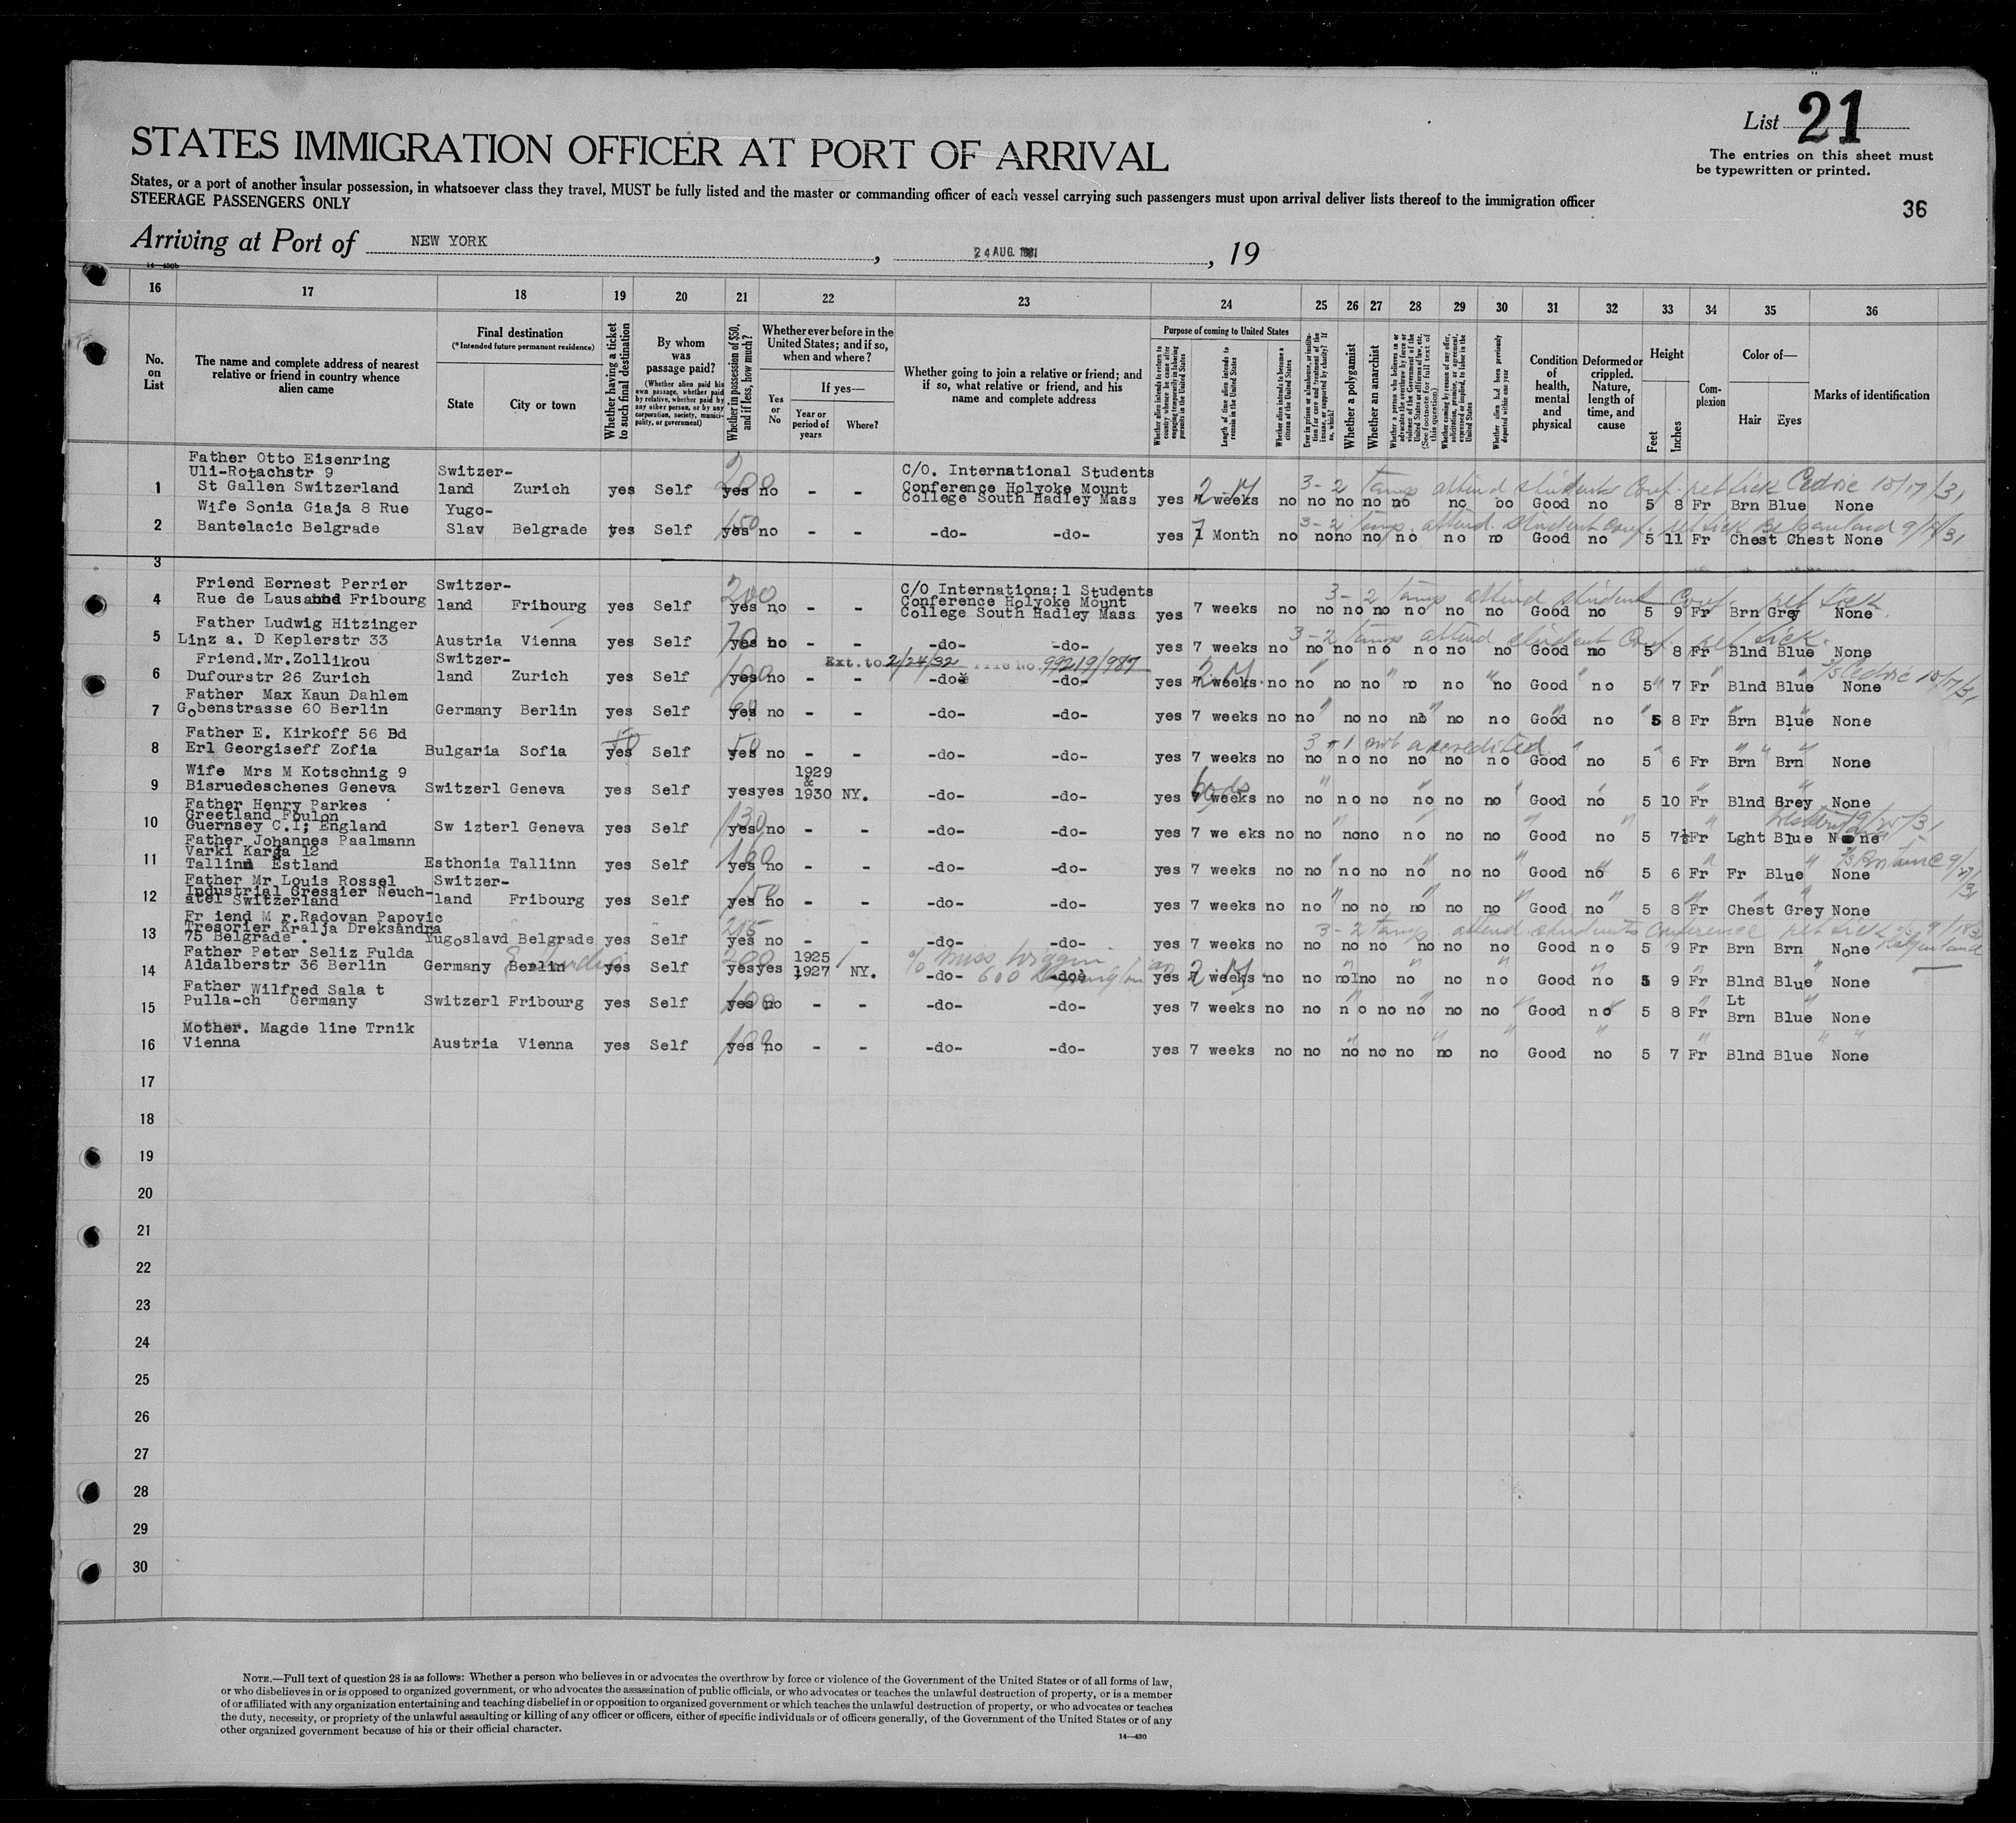 List 21
The entries on this sheet must
be typewritten or printed.
36
STATES IMMIGRATION OFFICER AT PORT OF ARRIVAL
States, or a port of another insular possession, in whatsoever class they travel, MUST be fully listed and the master or commanding officer of each vessel carrying such passengers must upon arrival deliver lists thereof to the immigration officer
STEERAGE PASSENGERS ONLY
Arriving at Port of NEW YORK, 24 AUG. , 19
14—430b
16 17 18 19 20 21 22 23 24 25 26 27 28 29 30 31 32 33 34 35 36
No. on List
The name and complete address of nearest relative or friend in country whence alien came
Final destination
(*Intended future permanent residence)
State City or town
Whether having a ticket to such final destination
By whom was passage paid?
(Whether alien paid his own passage, whether paid by relative, whether paid by any other person, or by any corporation, society, municipality, or government)
Whether in possession of $50, and if less, how much?
Whether ever before in the United States; and if so, when and where?
Yes or No
If yes—
Year or period of years
Where?
Whether going to join a relative or friend; and if so, what relative or friend, and his name and complete address
Purpose of coming to United States
Whether alien intends to return to country whence he came after engaging temporarily in laboring pursuits in the United States
Length of time alien intends to remain in the United States
Whether alien intends to become a citizen of the United States
Ever in prison or almshouse, or institution for care and treatment of the insane, or supported by charity? If so, which?
Whether a polygamist
Whether an anarchist
Whether a person who believes in or advocates the overthrow by force or violence of the Government of the United States or all forms of law, etc. (See footnote for full text of this question)
Whether coming by reason of any offer, solicitation, promise, or agreement, expressed or implied, to labor in the United States
Whether alien had been previously deported within one year
Condition of health, mental and physical
Deformed or crippled. Nature, length of time, and cause
Height
Feet Inches
Complexion
Color of—
Hair Eyes
Marks of identification
Father Otto Eisenring
Uli-Rotachstr 9 Switzer- 200 C/O. International Students
1 St Gallen Switzerland land Zurich yes Self yes no - - Conference Holyoke Mount College South Hadley Mass yes 2 M weeks no no no no no no bo Good no 5 8 Fr Brn Blue None
3-2 Temp attend students Conf. ret tick Cedric 10/17/31
Wife Sonia Giaja 8 Rue Yugo- 150
2 Bantelacic Belgrade Slav Belgrade yes Self yes no -do- -do- yes 1 Month no no no no no no no Good no 5 11 Fr Chest Chest None
3-2 Temp. attend. Student Conf. ret tick Belgenland 9/18/31
3
Friend Eernest Perrier Switzer- 200 C/O Internationa:l Students
4 Rue de Lausannd Fribourg land Fribourg yes Self yes no - - Conference Holyoke Mount College South Hadley Mass yes 7 weeks no no no no no no no Good no 5 9 Fr Brn Grey None
3-2 Temp attend student Conf. ret tick
Father Ludwig Hitzinger 70
5 Linz a. D Keplerstr 33 Austria Vienna yes Self yes no - - -do- -do- yes 7 weeks no no no no no no no Good no 5 8 Fr Blnd Blue None
3-2 Temp attend student Conf. ret tick.
Ext. to 2/24/32 File No. 99219/987
Friend.Mr.Zollikou Switzer- 100
6 Dufourstr 26 Zurich land Zurich yes Self yes no - - -do- -do- yes 2 M. weeks. no no no no no no no Good no 5 7 Fr Blnd Blue None
Cedric 10/17/31
Father Max Kaun Dahlem
7 Gobenstrasse 60 Berlin Germany Berlin yes Self yes no - - -do- -do- yes 7 weeks no no no no no no no Good no 5 8 Fr Brn Blue None
Father E. Kirkoff 56 Bd 50
8 Erl Georgiseff Zofia Bulgaria Sofia yes Self yes no - - -do- -do- yes 7 weeks no no no no no no no Good no 5 6 Fr Brn Brn None
not accredited
Wife Mrs M Kotschnig 9 1929 & 60 ds
9 Bisruedeschenes Geneva Switzerl Geneva yes Self yes yes 1930 NY. -do- -do- yes 7 weeks no no no no no no no Good no 5 10 Fr Blnd Grey None
Father Henry Parkes
Greetland Foulon 130
10 Guernsey C.I; England Sw izterl Geneva yes Self yes no - - -do- -do- yes 7 we eks no no no no no no no Good no 5 7½ Fr Lght Blue None
9/20/31
Father Johannes Paalmann
Varki Karga 12 160
11 Tallinn Estland Esthonia Tallinn yes Self yes no - - -do- -do- yes 7 weeks no no no no no no no Good no 5 6 Fr Fr Blue None
Father Mr Louis Rossel Switzer-
Industrial Gressier Neuch- 150
12 atel Switzerland land Fribourg yes Self yes no - - -do- -do- yes 7 weeks no no no no no no no Good no 5 8 Fr Chest Grey None
Fr iend M r.Radovan Papovic
Tresorier Kralja Dreksandra 215
13 75 Belgrade . Yugoslavd Belgrade yes Self yes no - - -do- -do- yes 7 weeks no no no no no no no Good no 5 9 Fr Brn Brn None
3-2 Temp. attend. students Conference ret tick
Father Peter Seliz Fulda 200 1925 c/o Miss Wiggin
14 Aldalberstr 36 Berlin Germany Berlin yes Self yes yes 1927 NY. -do- 600 Lexington -do- yes 2 M. weeks no no no no no no no Good no 5 9 Fr Blnd Blue None
Father Wilfred Sala t 100
15 Pulla-ch Germany Switzerl Fribourg yes Self yes no - - -do- -do- yes 7 weeks no no no no no no no Good no 5 8 Fr Lt Brn Blue None
Mother. Magde line Trnik 100
16 Vienna Austria Vienna yes Self yes no - - -do- -do- yes 7 weeks no no no no no no no Good no 5 7 Fr Blnd Blue None
17
18
19
20
21
22
23
24
25
26
27
28
29
30
NOTE.—Full text of question 28 is as follows: Whether a person who believes in or advocates the overthrow by force or violence of the Government of the United States or of all forms of law,
or who disbelieves in or is opposed to organized government, or who advocates the assassination of public officials, or who advocates or teaches the unlawful destruction of property, or is a member
of or affiliated with any organization entertaining and teaching disbelief in or opposition to organized government or which teaches the unlawful destruction of property, or who advocates or teaches
the duty, necessity, or propriety of the unlawful assaulting or killing of any officer or officers, either of specific individuals or of officers generally, of the Government of the United States or of any
other organized government because of his or their official character.
14—430